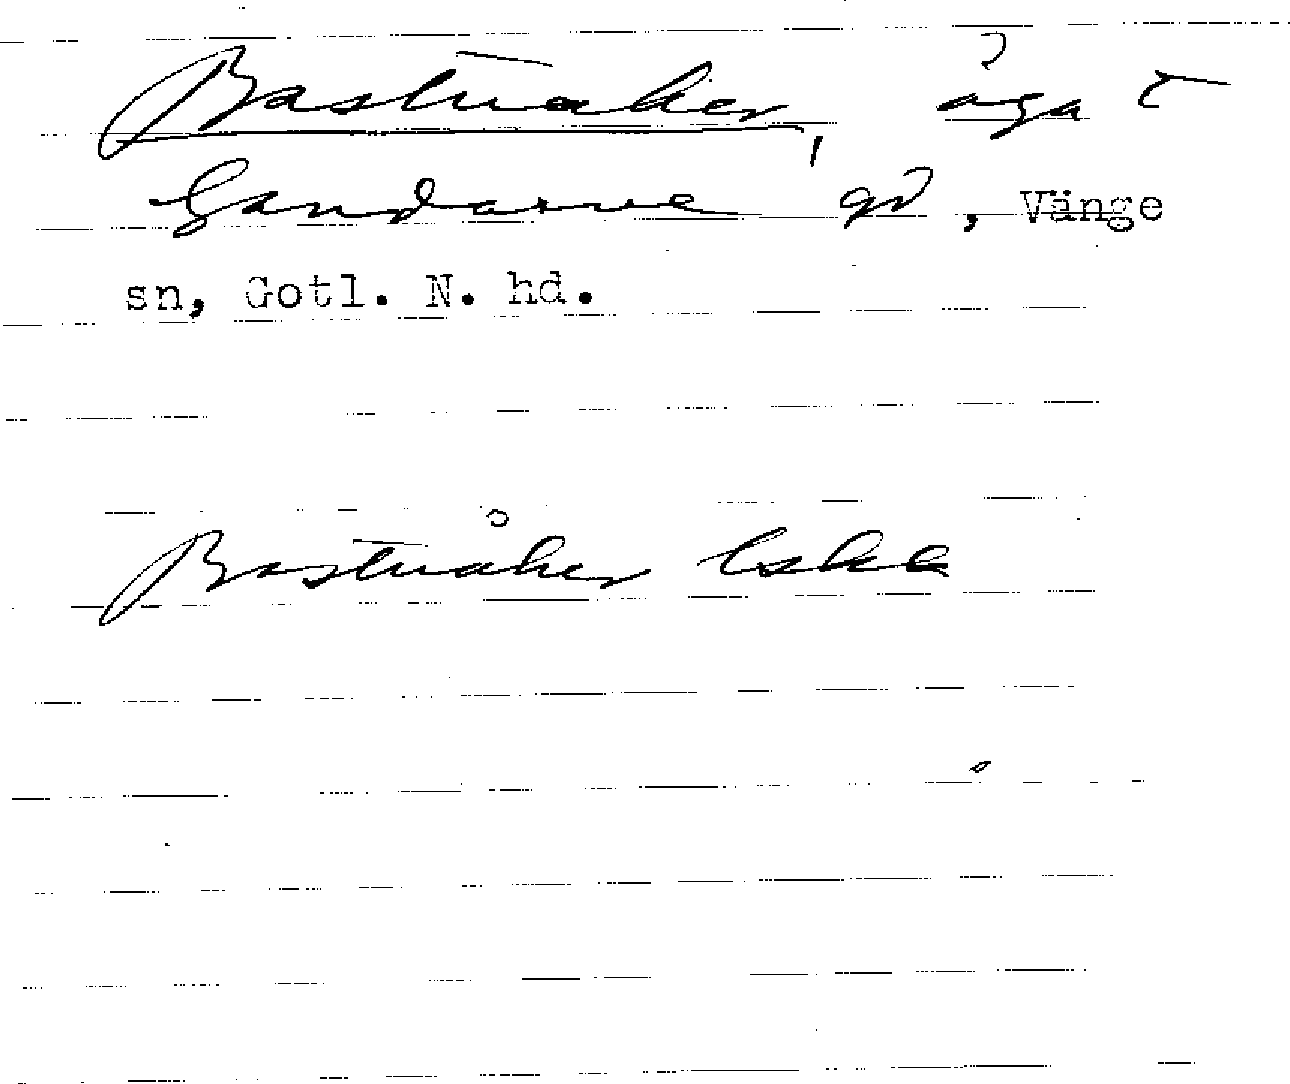 Bastuaker, åga t
Gandarve gd, Vänge
sn, Gotl. N. hd.
Bastuåker